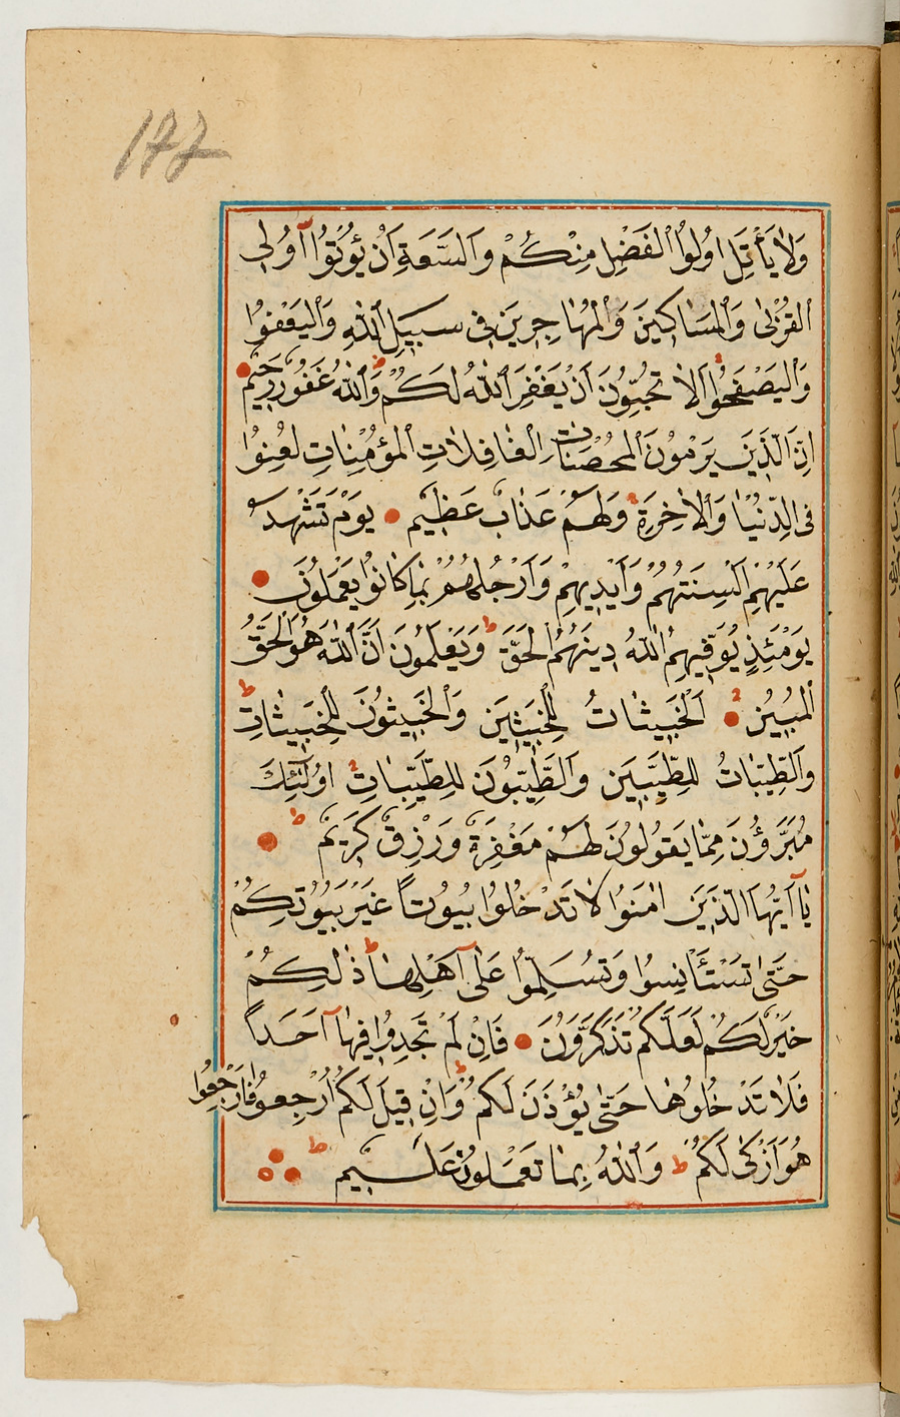 177
وَلَا يَأْتَلِ اُولُوا الْفَضْلِ مِنْكُمْ وَالسَّعَةِ اَنْ يُؤْتُوا اُولِى
الْقُرْبٰى وَالْمَسَاكِينَ وَالْمُهَاجِرِينَ فِى سَبِيلِ اللّٰهِ وَالْيَعْفُوا
وَالْيَصْفَحُوا اَلَا تُحِبُّونَ اَنْ يَغْفِرَ اللّٰهُ لَكُمْ وَاللّٰهُ غَفُورٌ رَحِيمٌ
اِنَّ الَّذِينَ يَرْمُونَ الْمُحْصَنَاتِ الْغَافِلَاتِ الْمُؤْمِنَاتِ لُعِنُوا
فِى الدُّنْيَا وَالْاٰخِرَةِ وَلَهُمْ عَذَابٌ عَظِيمٌ يَوْمَ تَشْهَدُ
عَلَيْهِمْ اَلْسِنَتُهُمْ وَاَيْدِيهِمْ وَاَرْجُلُهُمْ بِمَا كَانُوا يَعْمَلُونَ
يَوْمَئِذٍ يُوَفِّيهِمُ اللّٰهُ دِينَهُمُ الْحَقَّ وَيَعْلَمُونَ اَنَّ اللّٰهَ هُوَ الْحَقُّ
الْمُبِينُ اَلْخَبِيثَاتُ لِلْخَبِيثِينَ وَالْخَبِيثُونَ لِلْخَبِيثَاتِ
وَالطَّيِّبَاتُ لِلطَّيِّبِينَ وَالطَّيِّبُونَ لِلطَّيِّبَاتِ اُولٰئِكَ
مُبَرَّؤُنَ مِمَّا يَقُولُونَ لَهُمْ مَغْفِرَةٌ وَرِزْقٌ كَرِيمٌ
يَا اَيُّهَا الَّذِينَ اٰمَنُوا لَا تَدْخُلُوا بُيُوتًا غَيْرَ بُيُوتِكُمْ
حَتّٰى تَسْتَأْنِسُوا وَتُسَلِّمُوا عَلٰى اَهْلِهَا ذٰلِكُمْ
خَيْرٌ لَكُمْ لَعَلَّكُمْ تَذَكَّرُونَ فَاِنْ لَمْ تَجِدُوا فِيهَا اَحَدًا
فَلَا تَدْخُلُوهَا حَتّٰى يُؤْذَنَ لَكُمْ وَاِنْ قِيلَ لَكُمُ ارْجِعُوا فَارْجِعُوا
هُوَ اَزْكٰى لَكُمْ وَاللّٰهُ بِمَا تَعْمَلُونَ عَلِيمٌ